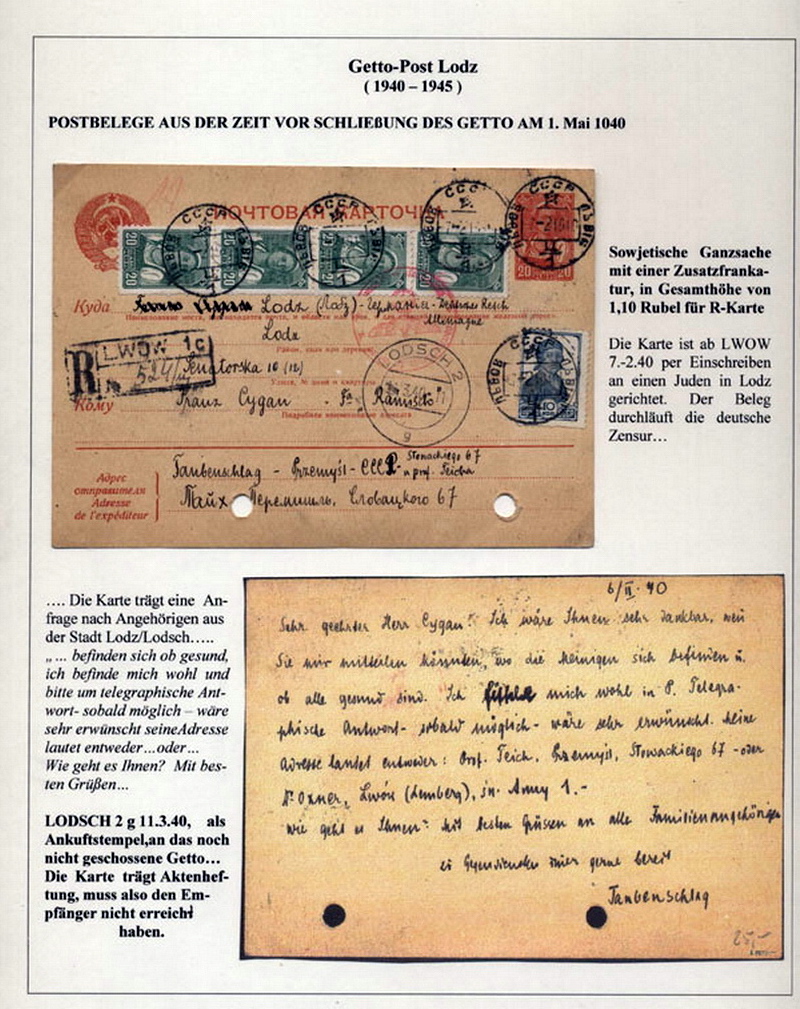 Getto-Post Lodz
( 1940 – 1945 )
POSTBELEGE AUS DER ZEIT VOR SCHLIEßUNG DES GETTO AM 1. Mai 1040
ПОЧТОВАЯ КАРТОЧКА
СССР
СССР
СССР
СССР
20
20
20 20
Куда
Lodz (Лодзь) - Германия - Deutsches Reich
Allemagne
Lodz
R
LWOW 1c
№
Senatorska 10 (12)
LODSCH 2
g
Кому
Franz Cygan
Подробное наименование адресата
Адрес
отправителя
Adresse
de l'expéditeur
Taubenschlag - Przemyśl - СССР
Słowackiego 67
u prof. Teicha
Тайх Перемишль, Словацкого 67
Sowjetische Ganzsache
mit einer Zusatzfranka-
tur, in Gesamthöhe von
1,10 Rubel für R-Karte
Die Karte ist ab LWOW
7.-2.40 per Einschreiben
an einen Juden in Lodz
gerichtet. Der Beleg
durchläuft die deutsche
Zensur…
…. Die Karte trägt eine An-
frage nach Angehörigen aus
der Stadt Lodz/Lodsch…..
„ … befinden sich ob gesund,
ich befinde mich wohl und
bitte um telegraphische Ant-
wort- sobald möglich – wäre
sehr erwünscht seineAdresse
lautet entweder…oder…
Wie geht es Ihnen? Mit bes-
ten Grüßen…
LODSCH 2 g 11.3.40, als
Ankuftstempel,an das noch
nicht geschossene Getto…
Die Karte trägt Aktenhef-
tung, muss also den Em-
pfänger nicht erreicht
haben.
6/II. 40
Sehr geehrter Herr Cygan! Ich wäre Ihnen sehr dankbar, wenn
Sie mir mitteilen könnten, wo die Meinigen sich befinden u.
ob alle gesund sind. Ich mich wohl in P. Telegra-
phische Antwort - sobald möglich - wäre sehr erwünscht. Meine
Adresse lautet entweder: Prof. Teich, Przemyśl, Słowackiego 67 - oder
Dr Oxner, Lwów (Lemberg), Św. Anny 1.-
Wie geht es Ihnen? Mit besten Grüssen an alle Familienangehörigen
zu Gegendiensten immer gerne bereit
Taubenschlag
25,-